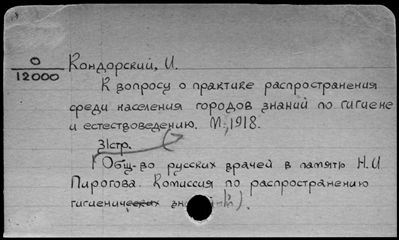 0
12000
Кондорский, И.
К вопросу о практике распространения
среди населения городов знаний по гигиене
и естествоведению. М., 1918.
31стр.
(Общ-во русских врачей в память Н.И.
Пирогова. Комиссия по распространению
гигиенических